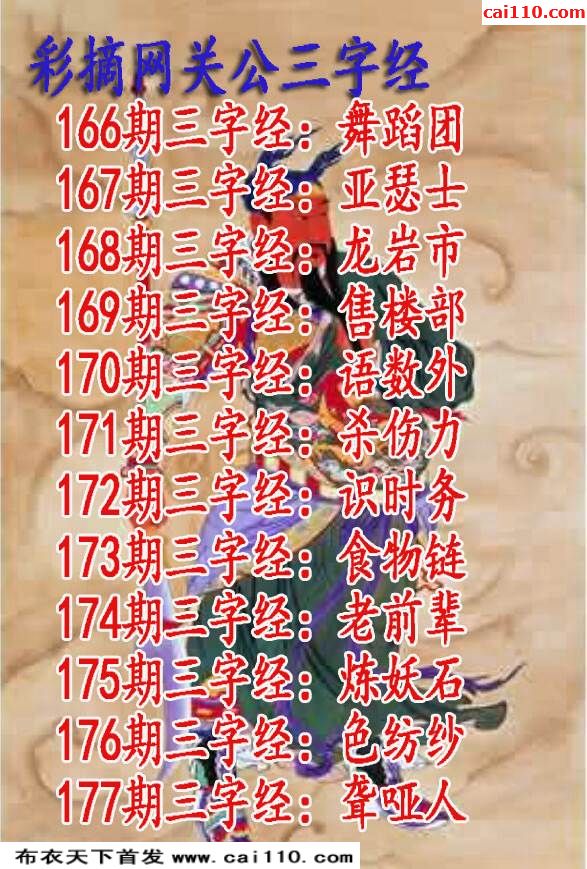 cai110.com
彩摘网关公三字经
166期三字经：舞蹈团
167期三字经：亚瑟士
168期三字经：龙岩市
169期三字经：售楼部
170期三字经：语数外
171期三字经：杀伤力
172期三字经：识时务
173期三字经：食物链
174期三字经：老前辈
175期三字经：炼妖石
176期三字经：色纺纱
177期三字经：聋哑人
布衣天下首发 www.cai110.com